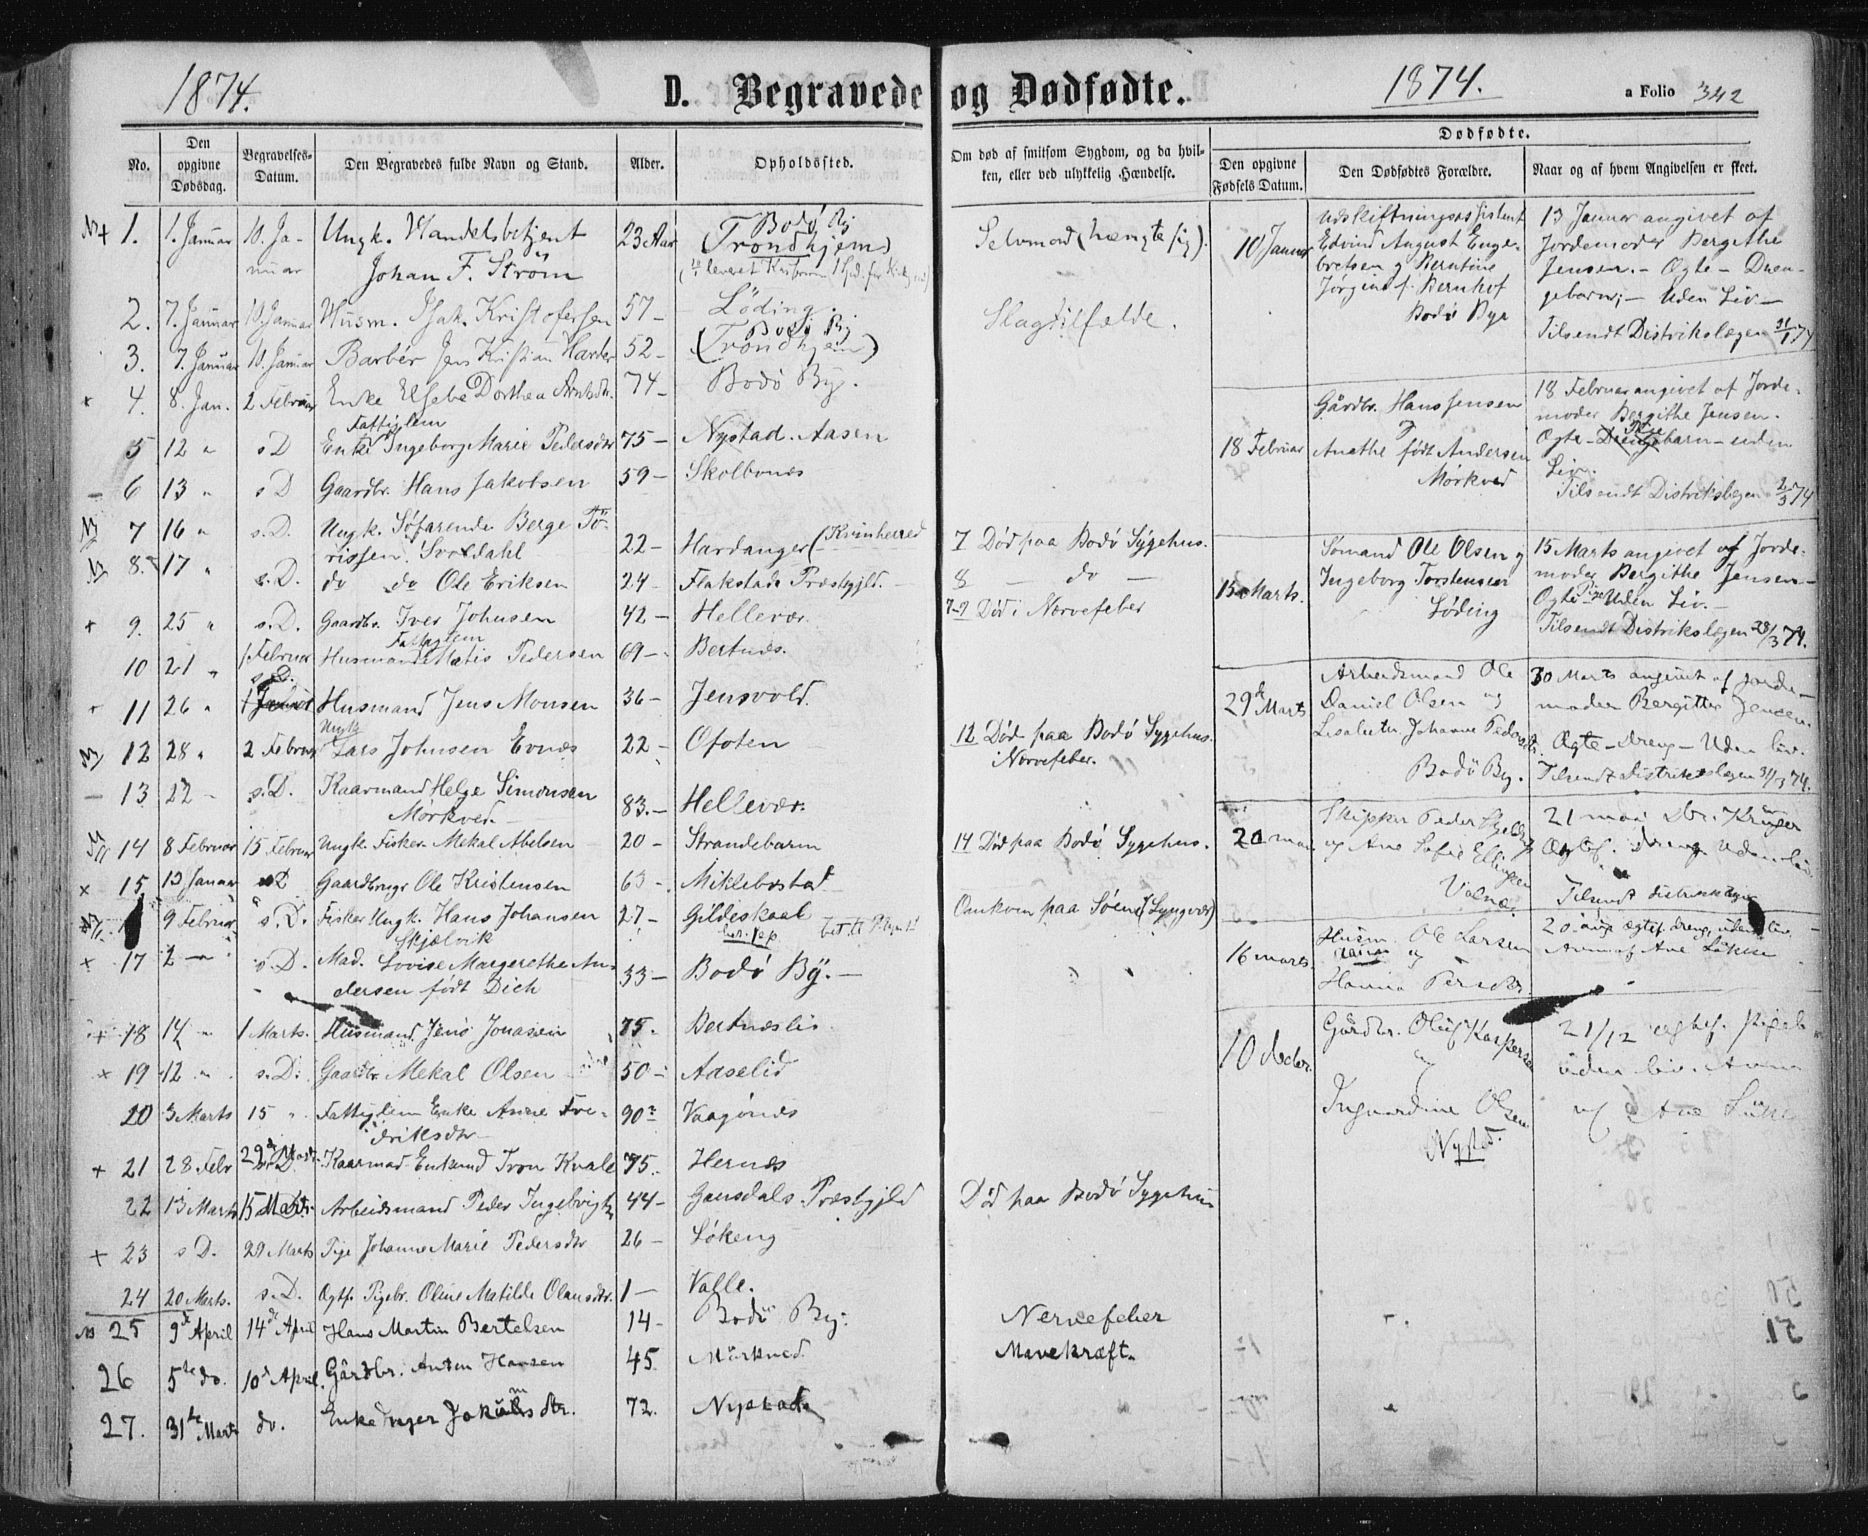 1874.
D. Begravede og Dødfødte.
1874.
a Folio 342
No.
Den opgivne Dødsdag.
Begravelses-Datum.
Den Begravedes fulde Navn og Stand.
Alder.
Opholdssted.
Om død af smitsom Sygdom, og da hvilken, eller ved ulykkelig Hændelse.
Dødfødte.
Den opgivne Fødsels Datum.
Den Dødfødtes Forældre.
Naar og af hvem Angivelsen er skeet.
1. 1. Januar 10. Januar Ungk. Handelsbetjent Johan F. Ström 23 Aar Bodø By (Trondhjem) Selvmord (hængte sig).
2. 7. Januar 10. Januar Husm. Isak Kristofersen 57 – Löding. Slagtilfælde.
3. 7. Januar 10. Januar Barbér Jens Kristian Harder 52 – Bodø By (Trondhjem)
4. 8. Jan. 2 Februar Enke Elsebe Dorthea Arntsdtr. 74 – Bodø By.
5 12 " s D Fattiglem Enke Ingeborg Marie Pedersdtr 75 – Nystad. Aasen
6 13 " s D Gaardbr. Hans Jakobsen 59 – Skolbones
7 16 " s. D. Ungk. Søfarende Berge Törissen 22 – Hardanger (Kvinherred 7 Død paa Bodø Sygehus.
8. 17 " s. D. do do Ole Eriksen 24 – Flakstads Præstgjld. 8 – do –
9. 25 " s. D. Gaardbr. Iver Johnsen 42 – Hellevær. Død i Nervefeber
10 21 " 1 Februar Husmand Fattiglem Matis Pedersen 69 – Bertnæs.
11 26 " s. D. Husmand Jens Monsen 36 – Jensvold.
12 28 " 2 Februar Ungk. Lars Johnsen Evnæs 22 – Ofoten 12 Død paa Bodø Sygehus. Nervefeber.
13 22 – s. D. Kaarmand Helge Simonsen Mørkved – 83. – Hellevær.
14 8 Februar 15 Februar Ungk. Fisker Mekal Abelsen 20 – Strandebarm 14 Død paa Bodø Sygehus.
15 13 Januar s D Gaardbruger Ole Kristensen 63 – Miklebostad
9 Februar s. D. Fisker Ungk. Hans Johansen Skjælvik 27 – Gildeskaal Omkom paa Søen (Lyngvær)
17 2 – s. D. Mad. Lovise Margerethe Andersen født Dich 33 – Bodø By. –
18 14 " 1 Marts. Husmand Jens Jonasen 75. Bertnæslis
19 12 " s. D. Gaardbr. Mekal Olsen 50 – Aaselid
20 3 Marts 15 " Fattiglem Enke Anne Fredriksdtr 90 Vaagønes
21 28 Febr Kaarmand Enkemd Tron Kvale 75. Hernæs
22 13 Marts 15 Marts Arbeidsmand Peder Ingebrigts. 44 – Præstgjeld Død paa Bodø Sygehus
23 s D. 29 Marts Pige Johanne Marie Pedersdtr 26 – Løkeng
24 20 Marts. s. D. Ægtf. Pigebr. Oline Matilde Olausdtr. 1 – Valle.
25 9de April 14de April Hans Martin Bertelsen 14 – Bodø By. Nervefeber
26 5te do. 10de April. Gårdbr. Anton Hansen 45. Mörkved. Mavekræft.
27. 31te Marts do. Enke 72. Nystad
10 Januar Udskiftningsassistent Edvind August Engebretsen og Berntine Jørgine f. Bernhof Bodø Bye
13 Januar angivet af Jordemoder Bergithe Jensen. – Ægte – Drengebarn; – Uden Liv – Tilsendt Distrikslægen 31/1 74
18 Februar Gårdbr. Hans Jensen og Anethe født Andersen Mørkved
18 Februar angivet af Jordemoder Bergithe Jensen. Ægte – Pige barn – uden Liv. Tilsendt Distrikslægen 2/3 74
15 Marts. Sømand Ole Olsen og Ingeborg Torstensen Løding
15 Marts angivet af Jordemoder Bergithe Jensen – Ægte Pige Uden Liv. – Tilsendt Distrikslægen 28/3 74.
29de Marts Arbeidsmand Ole Daniel Olsen og Lisabeth Johanne Pedersdtr. Bodø By.
30 Marts angivet af Jordemoder Bergitte Jensen. Ægte – dreng – Uden liv. Tilsendt Distrikslægen 31/3 74.
20 mai Skipper Peder og Ane Sofie Ellingsen
21 mai Dbr. Krüger Ægtef. dreng Uden liv Tilsendt Distrikslægen
16 marts Husm. Ole Larsen og Hanna Persdtr.
20 ægtef. dreng, uden liv. Ane Löken
10 decbr. Gårdbr. Oluf Kaspersen og Ingvardine Olsen Nystad.
21/12 ægtef. Pigeb uden liv. af Ane